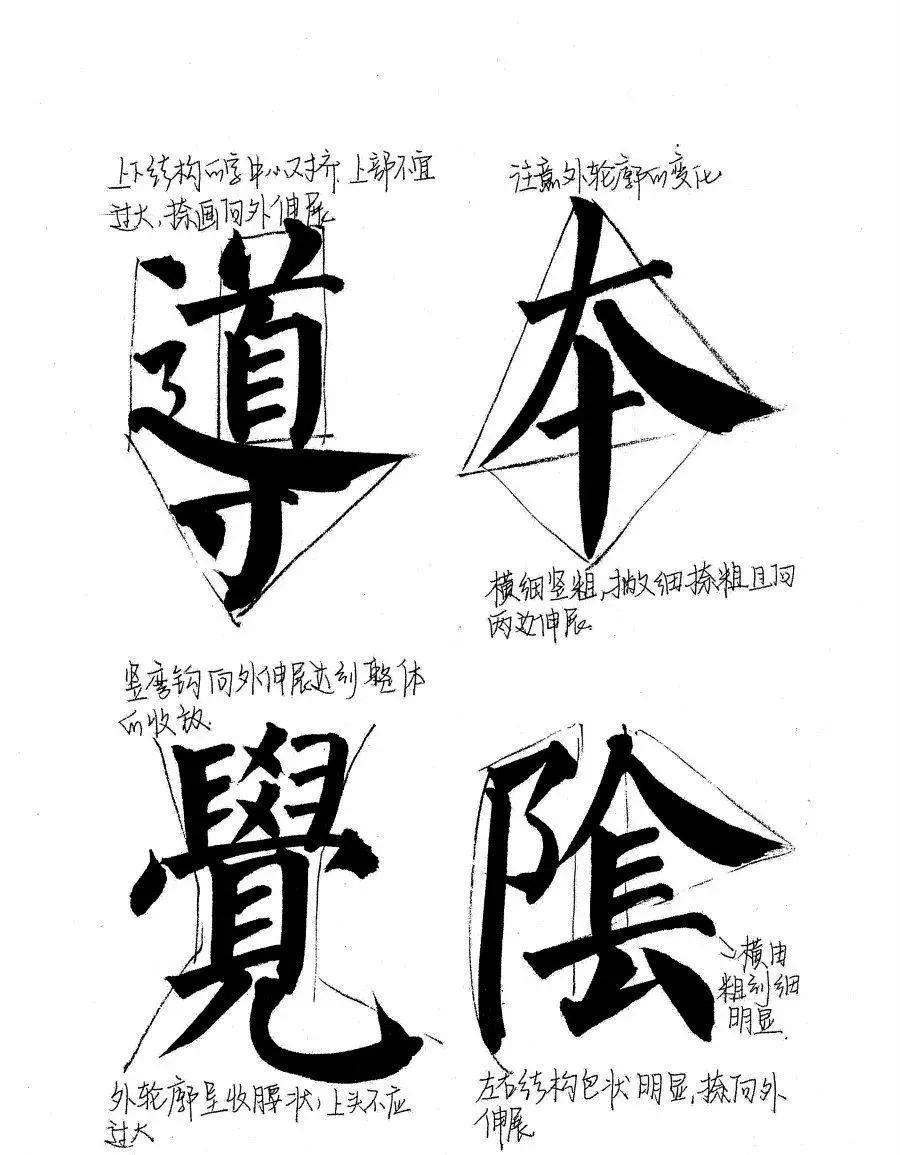 上下结构的字中心对齐.上部不宜
过大,捺画向外伸展
導
注意外轮廓的变化
本
横细竖粗,撇细捺粗且向
两边伸展.
竖弯钩向外伸展达到整体
的收放.
覺
外轮廓呈收腰状,上头不应
过大
陰
横由
粗到细
明显.
左右结构包状明显,捺向外
伸展